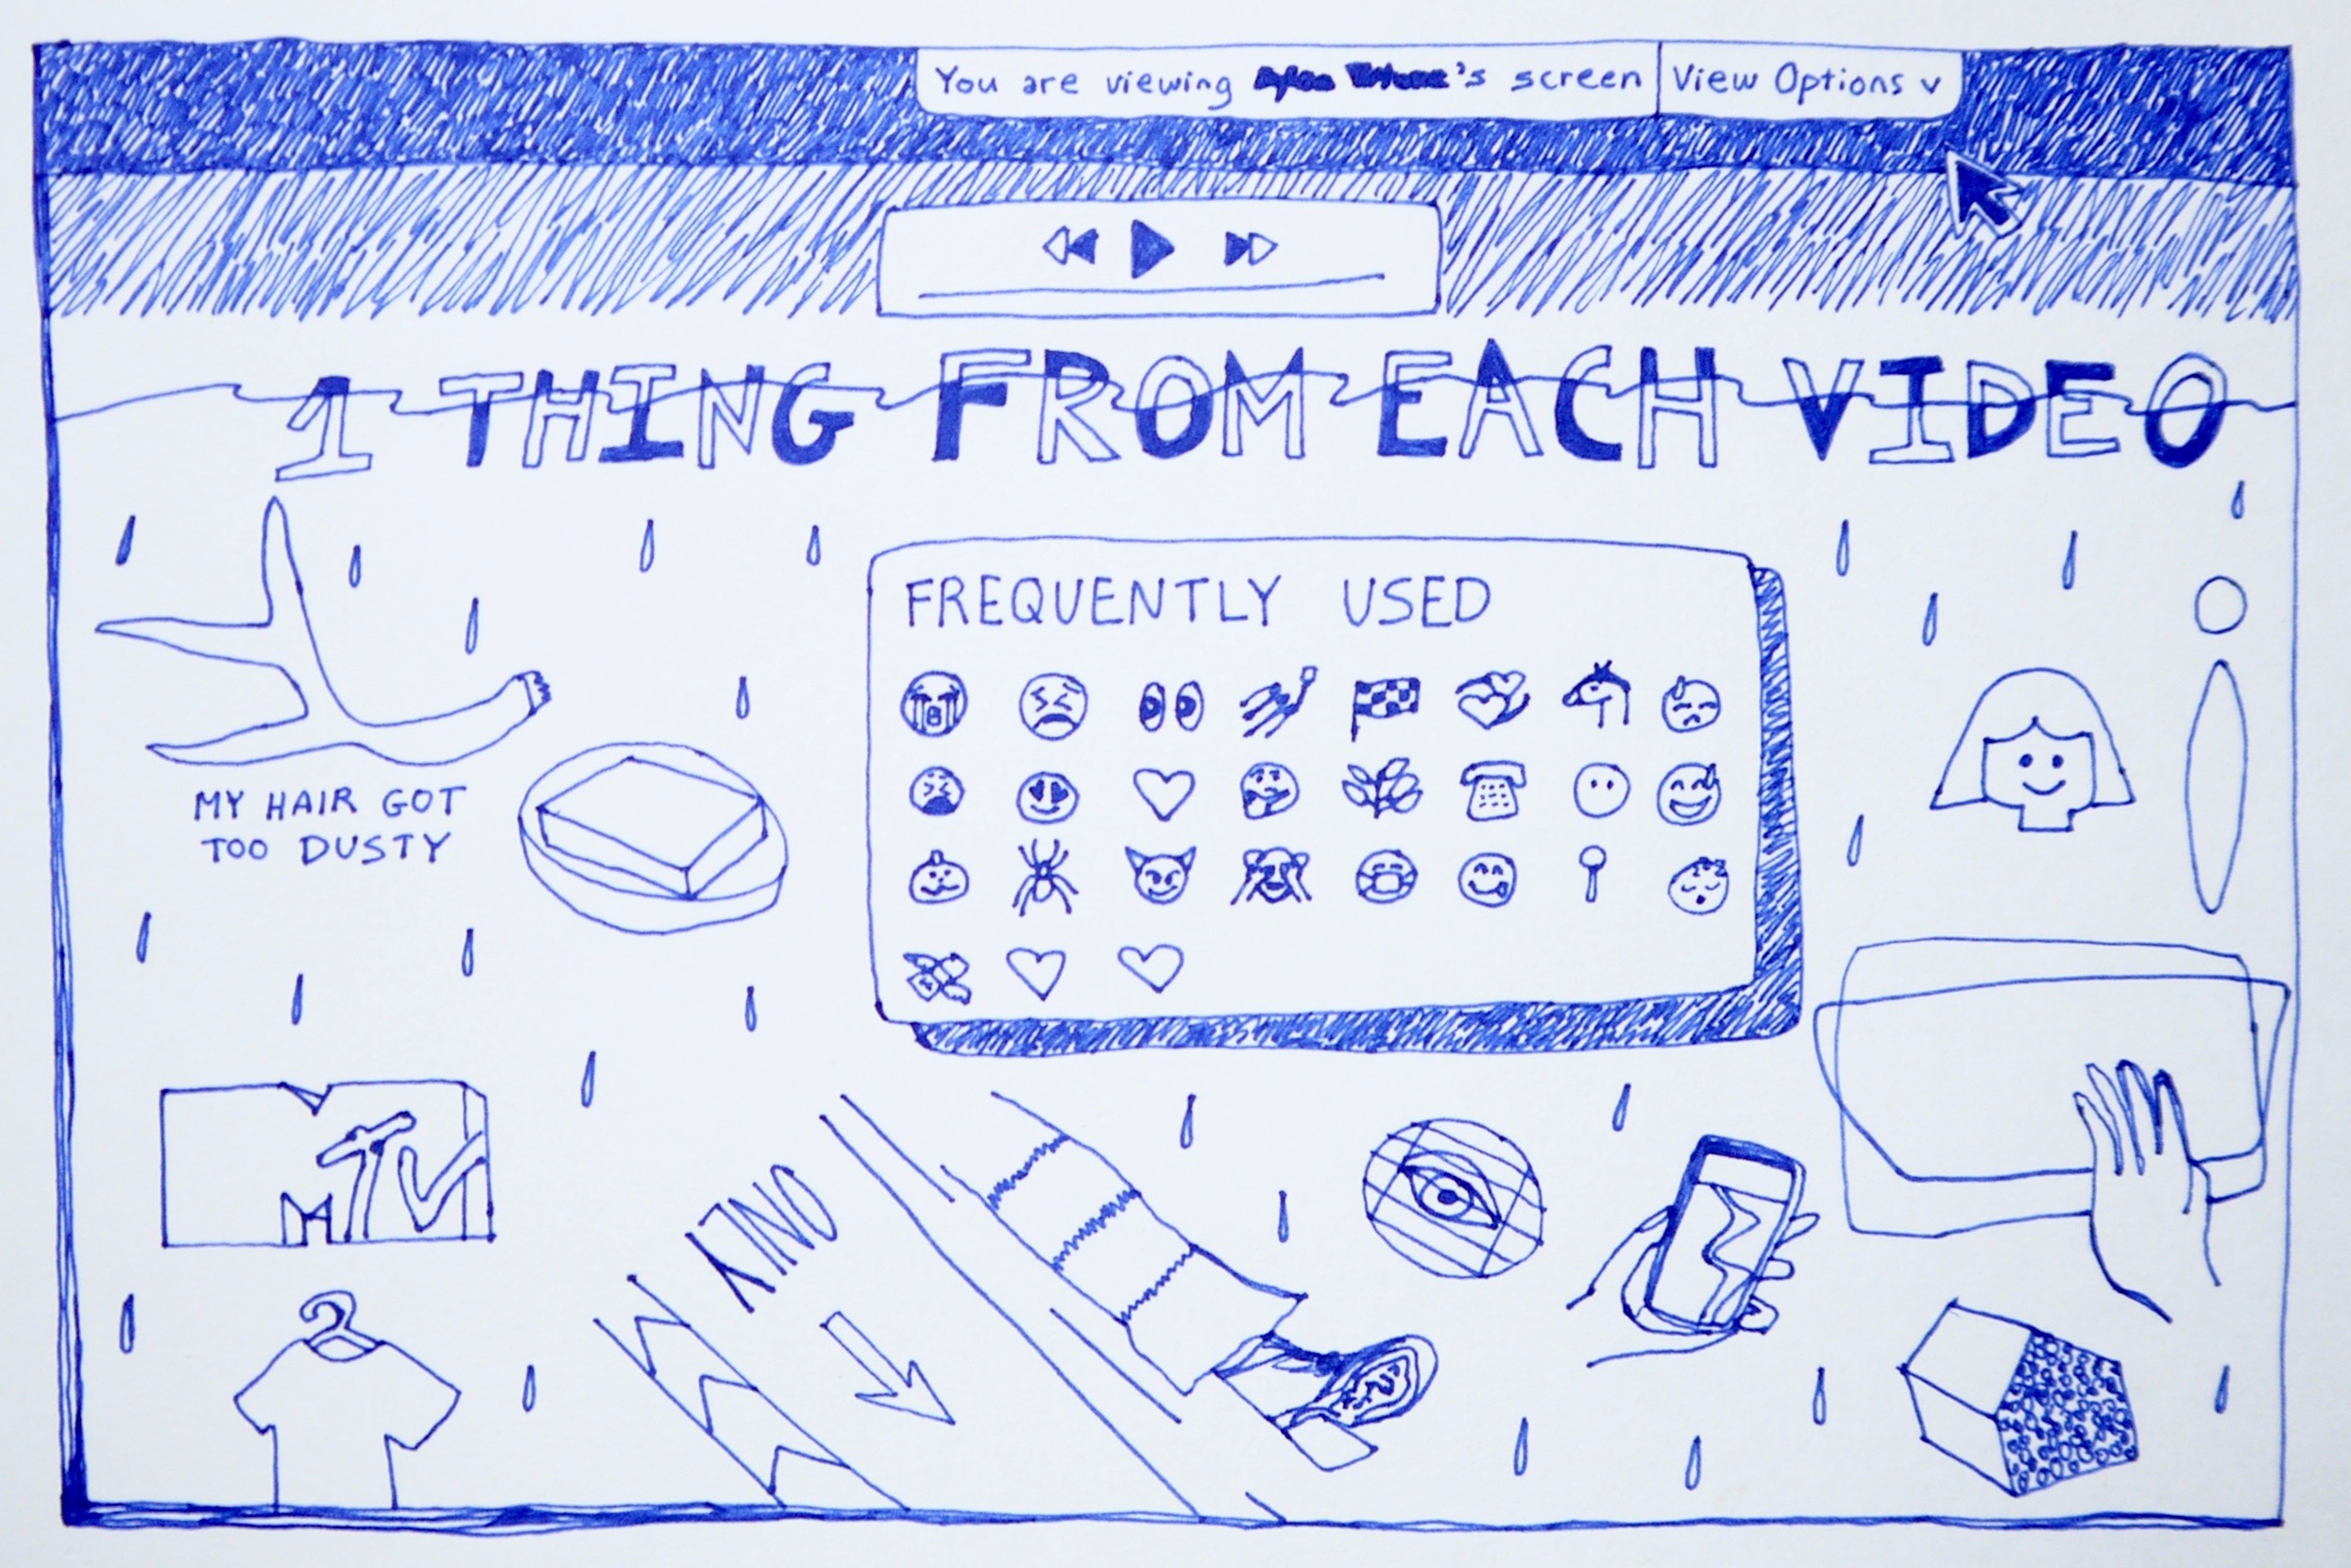 You are viewing 's screen
View Options v
1 THING FROM EACH VIDEO
FREQUENTLY USED
MY HAIR GOT
TOO DUSTY
MTV
ONLY